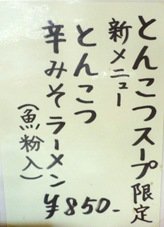 とんこつスープ限定
新メニュー
とんこつ
辛みそラーメン
(魚粉入)
¥850-